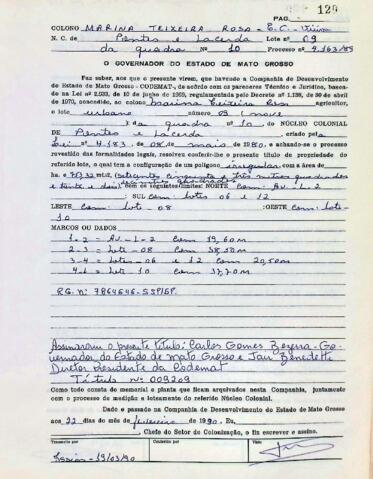 PAG. 129
COLONO MARINA TEIXEIRA ROSA - E.C. Viúva
N. C. de Pontes e Lacerda Lote nº 09
da quadra Nº 10 Processo nº 9.163/85
O GOVERNADOR DO ESTADO DE MATO GROSSO
Faz saber, aos que o presente virem, que havendo a Companhia de Desenvolvimento
do Estado de Mato Grosso - CODEMAT, de acôrdo com os pareceres Técnico e Jurídico, basea-
da na Lei nº 2.933, de 10 de junho de 1969, regulamentada pelo Decreto nº 1.138, de 30 de abril
de 1970, concedido, ao colono Marina Teixeira Rosa agricultor,
o lote urbano número 09 (nove
) da quadra nº 10 do NÚCLEO COLONIAL
DE Pontes e Lacerda, criado pela
Lei 4.183, de 08 de maio de 1980, e achando-se o processo
revestido das formalidades legais, resolveu conferir-lhe o presente título de propriedade do
referido lote, o qual tem a configuração de um polígono irregular com a área de
ha e
e trinta e dois com os seguintes limites: NORTE com: Av. L-2
: SUL com: lotes 06 e 12
LESTE com: lote-08 :OESTE com: lote-
10
MARCOS OU DADOS
1-2 = Av. L-2 com 19,60m
2-3 = lote-08 com 38,50m
3-4 = lotes-06 e 12 com 20,50m
4-1 = lote-10 com 37,70m
RG. nº 7864646-SSP/SP.
Assinaram o presente título: Carlos Gomes Bezerra - Go-
vernador do Estado de Mato Grosso e Jair Benedetti
Diretor Presidente da Codemat
Título nº 009209
Como tudo consta do memorial e planta que ficam arquivados nesta Companhia, juntamente
com o processo de medição e loteamento do referido Núcleo Colonial.
Dado e passado na Companhia de Desenvolvimento do Estado de Mato Grosso
aos 22 dias do mês de fevereiro de 1990. Eu,
, Chefe do Setor de Colonização, o fiz escrever e assino.
Transcrito por Conferido por Visto
19/03/90